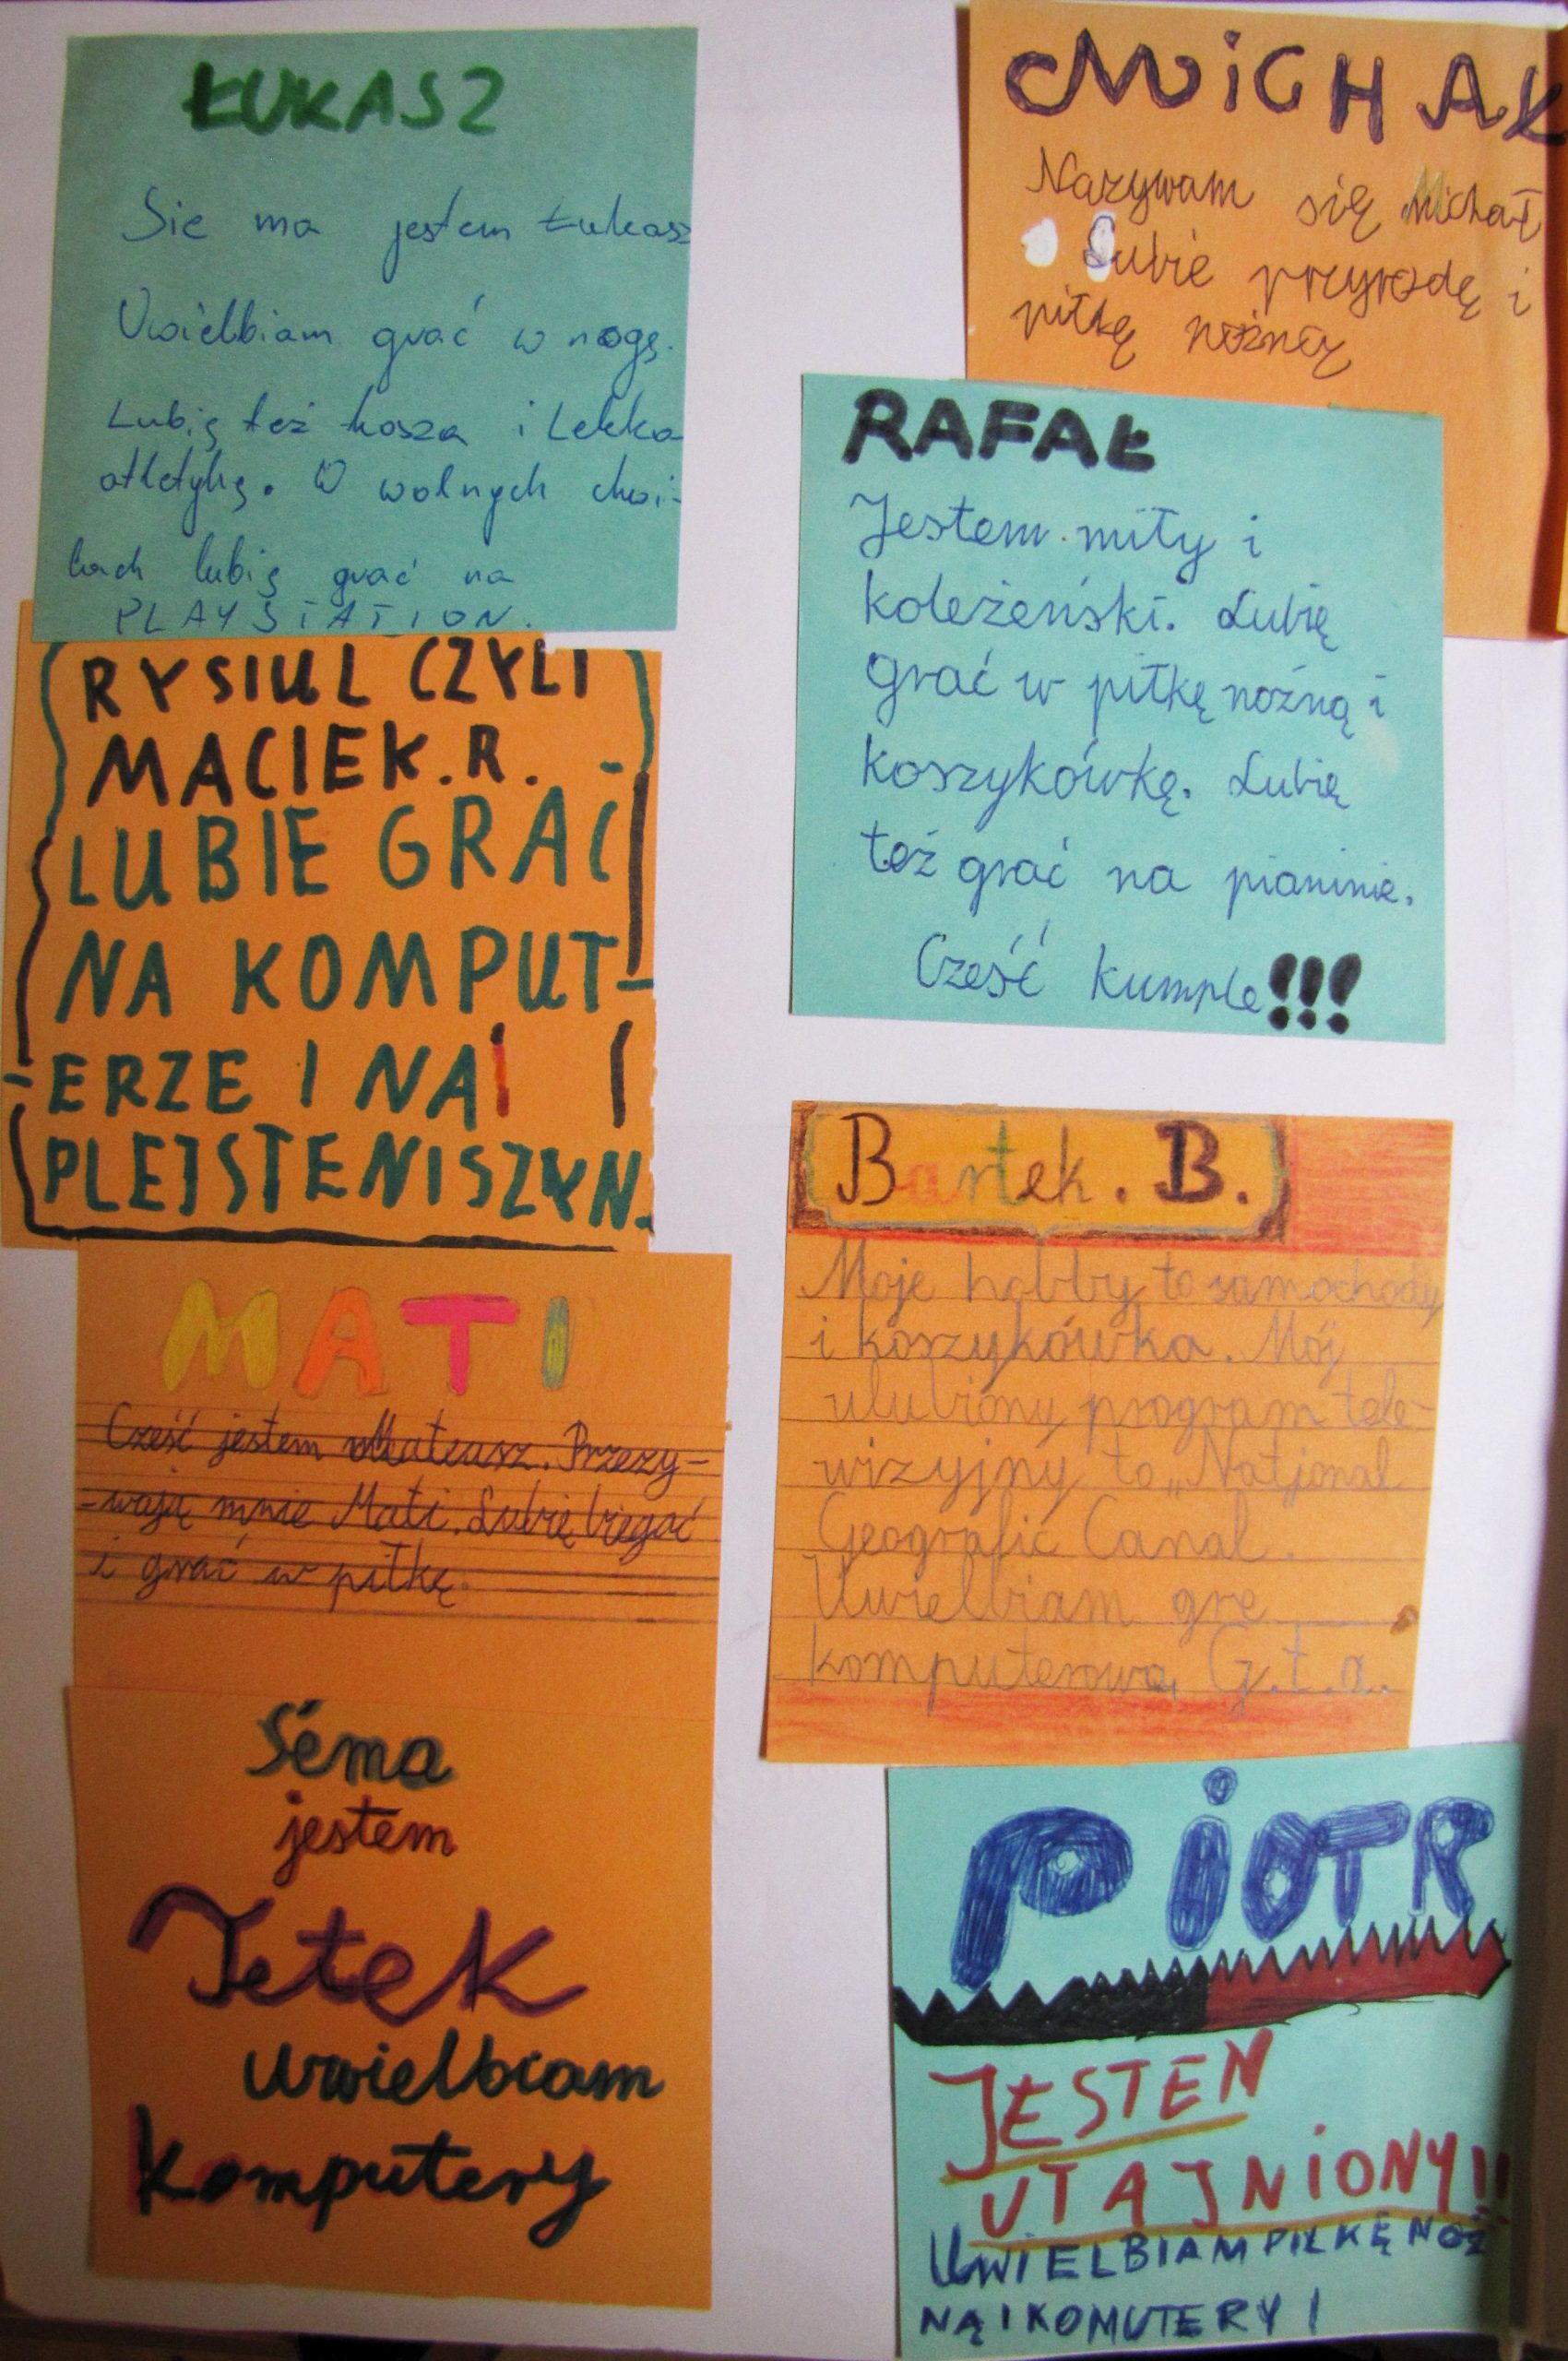 ŁUKASZ
Sie ma jestem Łukasz
Uwielbiam grać w nogę.
Lubię też kosza i Lekka
atletykę. W wolnych chwi-
lach lubię grać na
PLAYSTATION.
RYSIUL CZYLI
MACIEK.R.
LUBIE GRAĆ
NA KOMPUT-
-ERZE I NA
PLEJSTENISZYN.
MATI
Cześć jestem Mateusz. Przezy-
-wają mnie Mati. Lubię biegać
i grać w piłkę.
Séma
jestem
Jetek
uwielbiam
komputery
MiCHAŁ
Nazywam się Michał
Lubie przyrodę i
piłkę nożną
RAFAŁ
Jestem miły i
koleżeński. Lubię
grać w piłkę nożną i
koszykówkę. Lubię
też grać na pianinie.
Cześć kumple!!!
Bartek. B.
Moje hobby to samochody
i koszykówka. Mój
ulubiony program tele-
wizyjny to „Natjonal
Geografic Canal.
Uwielbiam grę
komputerową G.t.a..
PiOTR
JESTEN
UTAJNiONY!!
UWIELBIAM PIŁKĘ NOŻ
NĄ I KOMUTERY!